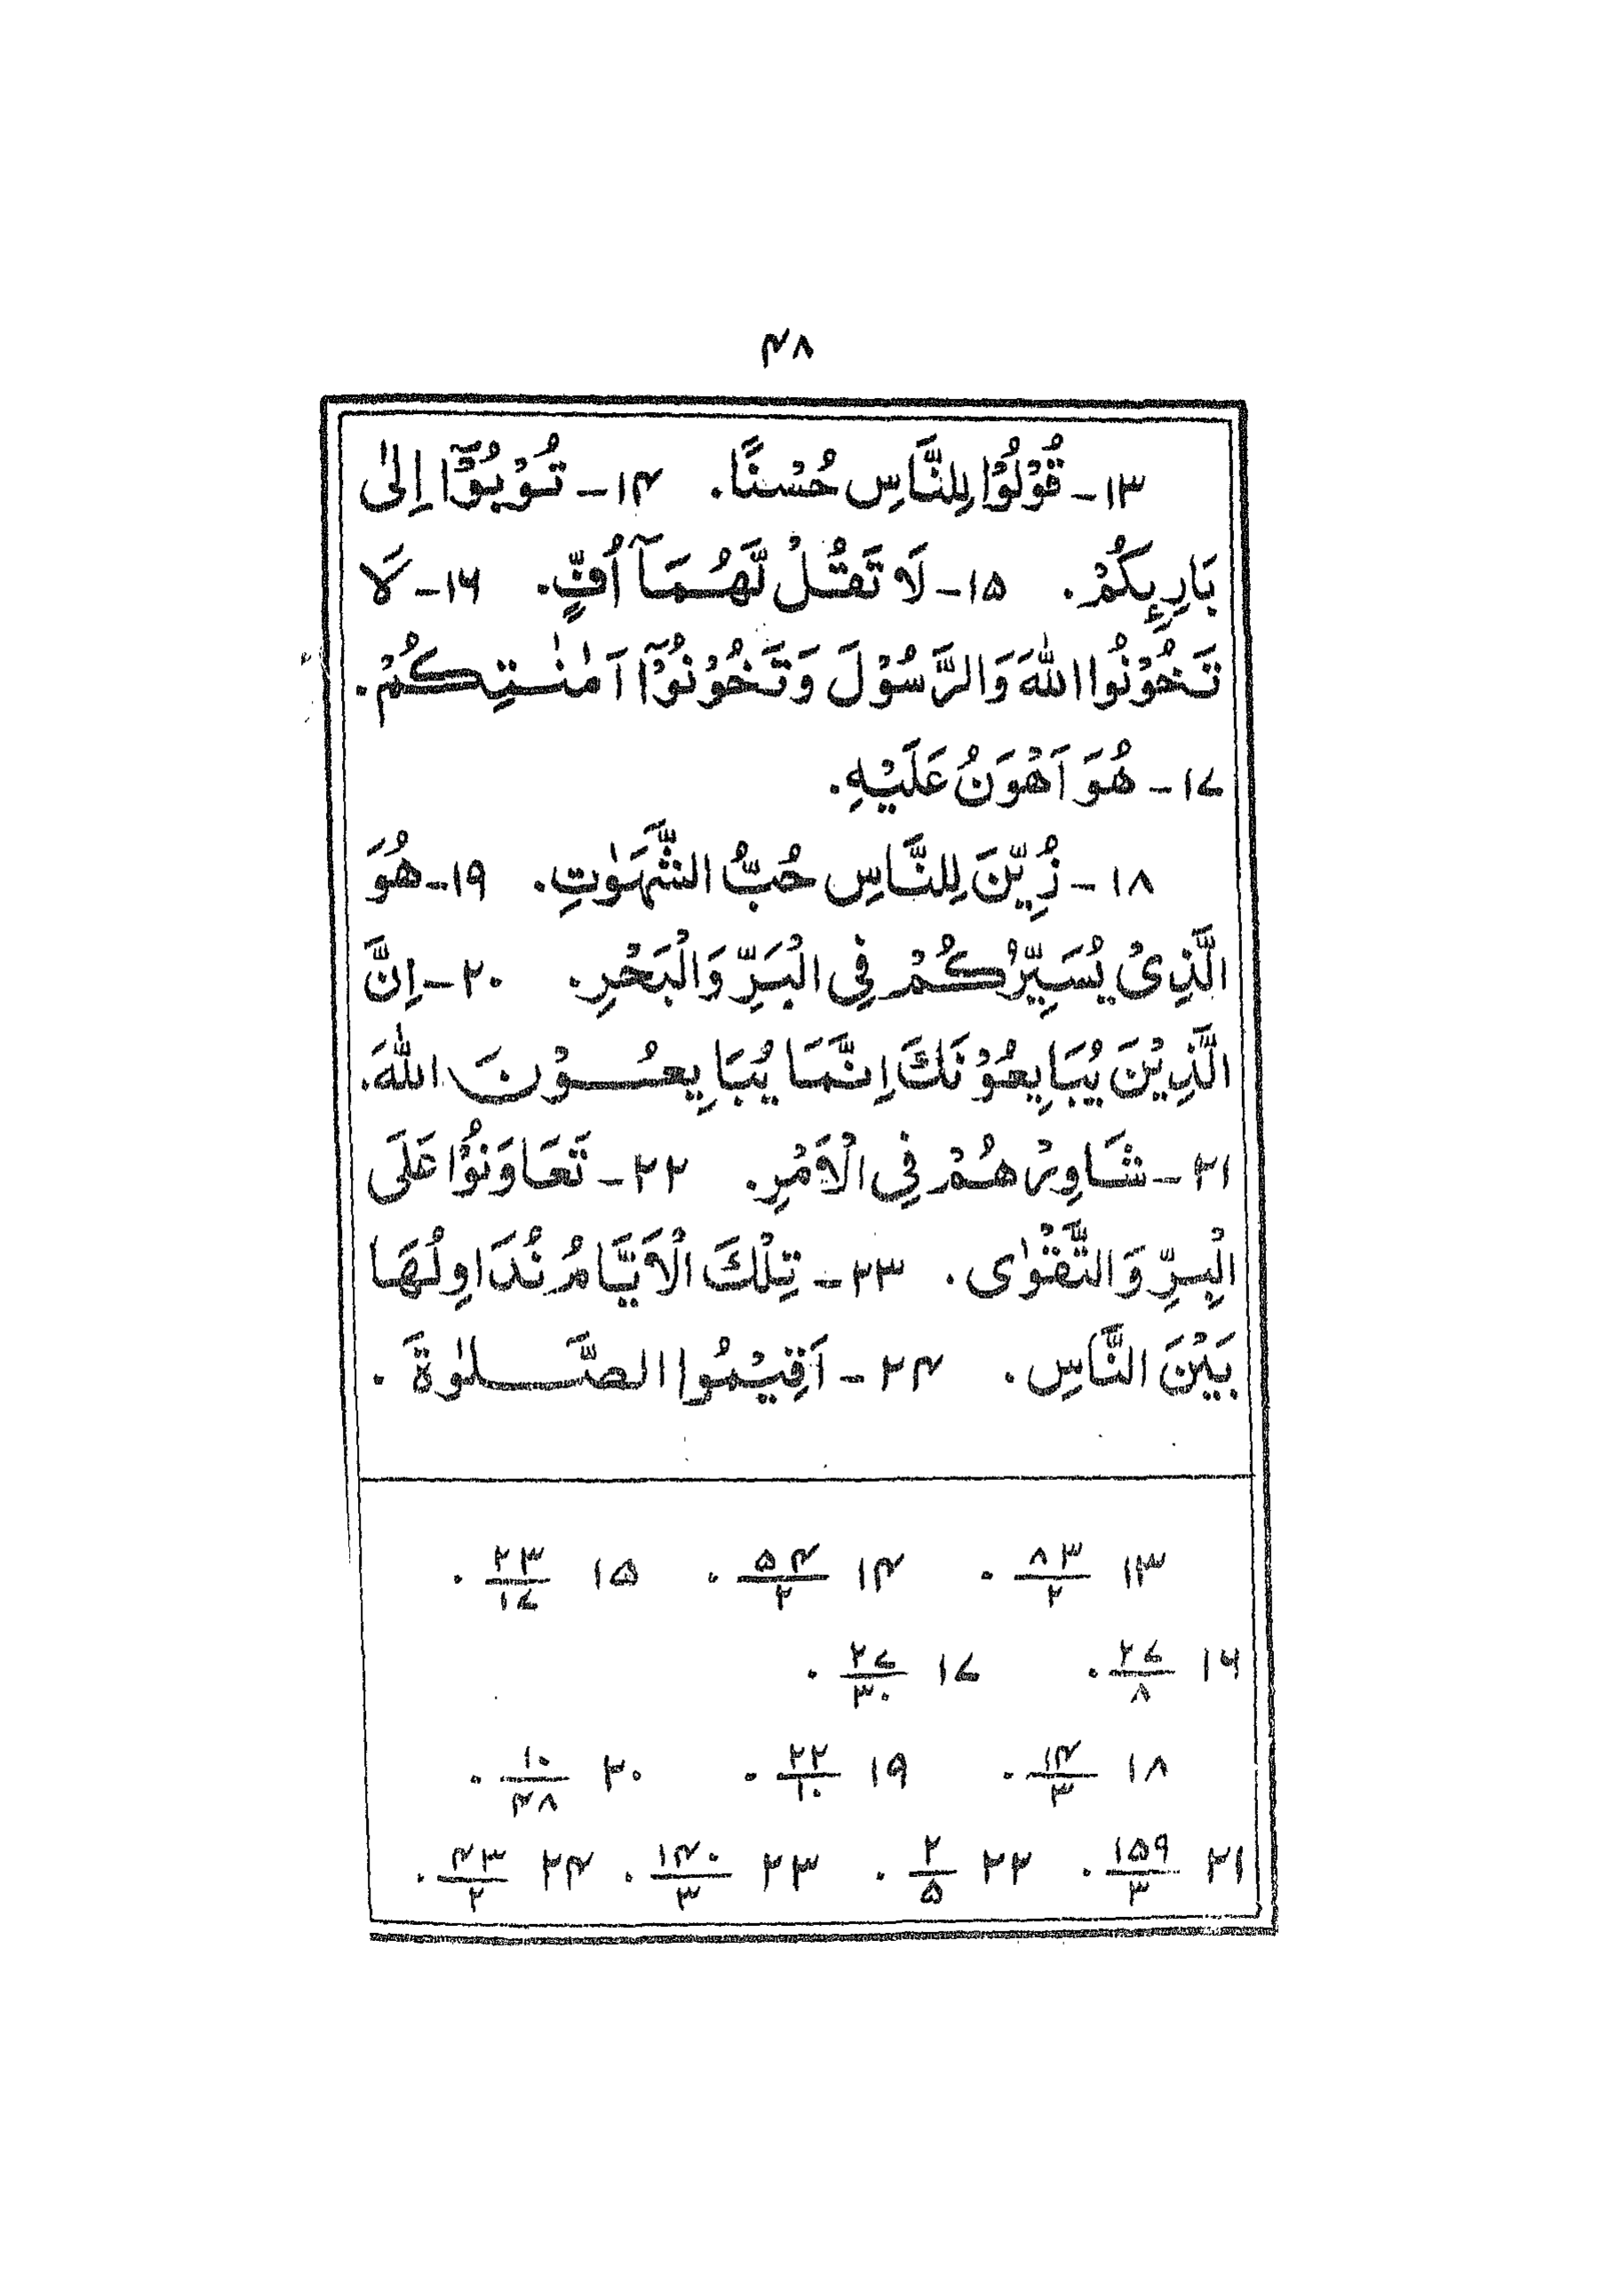 ۴۸
۱۳- قُوْلُوْا لِلنَّاسِ حُسْنًا. ۱۴- تُوْبُوْٓا اِلٰى
بَارِئِكُمْ. ۱۵- لَا تَقُلْ لَّهُمَآ اُفٍّ. ۱۶- لَا
تَخُوْنُوا اللّٰهَ وَالرَّسُوْلَ وَتَخُوْنُوْٓا اَمٰنٰتِكُمْ.
۱۷- هُوَ اَهْوَنُ عَلَيْهِ.
۱۸- زُيِّنَ لِلنَّاسِ حُبُّ الشَّهَوٰتِ. ۱۹- هُوَ
الَّذِىْ يُسَيِّرُكُمْ فِى الْبَرِّ وَالْبَحْرِ. ۲۰- اِنَّ
الَّذِيْنَ يُبَايِعُوْنَكَ اِنَّمَا يُبَايِعُوْنَ اللّٰهَ.
۲۱- شَاوِرْهُمْ فِى الْاَمْرِ. ۲۲- تَعَاوَنُوْا عَلَى
الْبِرِّ وَالتَّقْوٰى. ۲۳- تِلْكَ الْاَيَّامُ نُدَاوِلُهَا
بَيْنَ النَّاسِ. ۲۴- اَقِيْمُوا الصَّلٰوةَ.
۱۳ ۸۳/۲. ۱۴ ۵۴/۲. ۱۵ ۲۳/۱۷.
۱۶ ۲۷/۸. ۱۷ ۲۷/۳۰.
۱۸ ۱۴/۳. ۱۹ ۲۲/۱۰. ۲۰ ۱۰/۴۸.
۲۱ ۱۵۹/۳. ۲۲ ۲/۵. ۲۳ ۱۴۰/۳. ۲۴ ۴۳/۲.